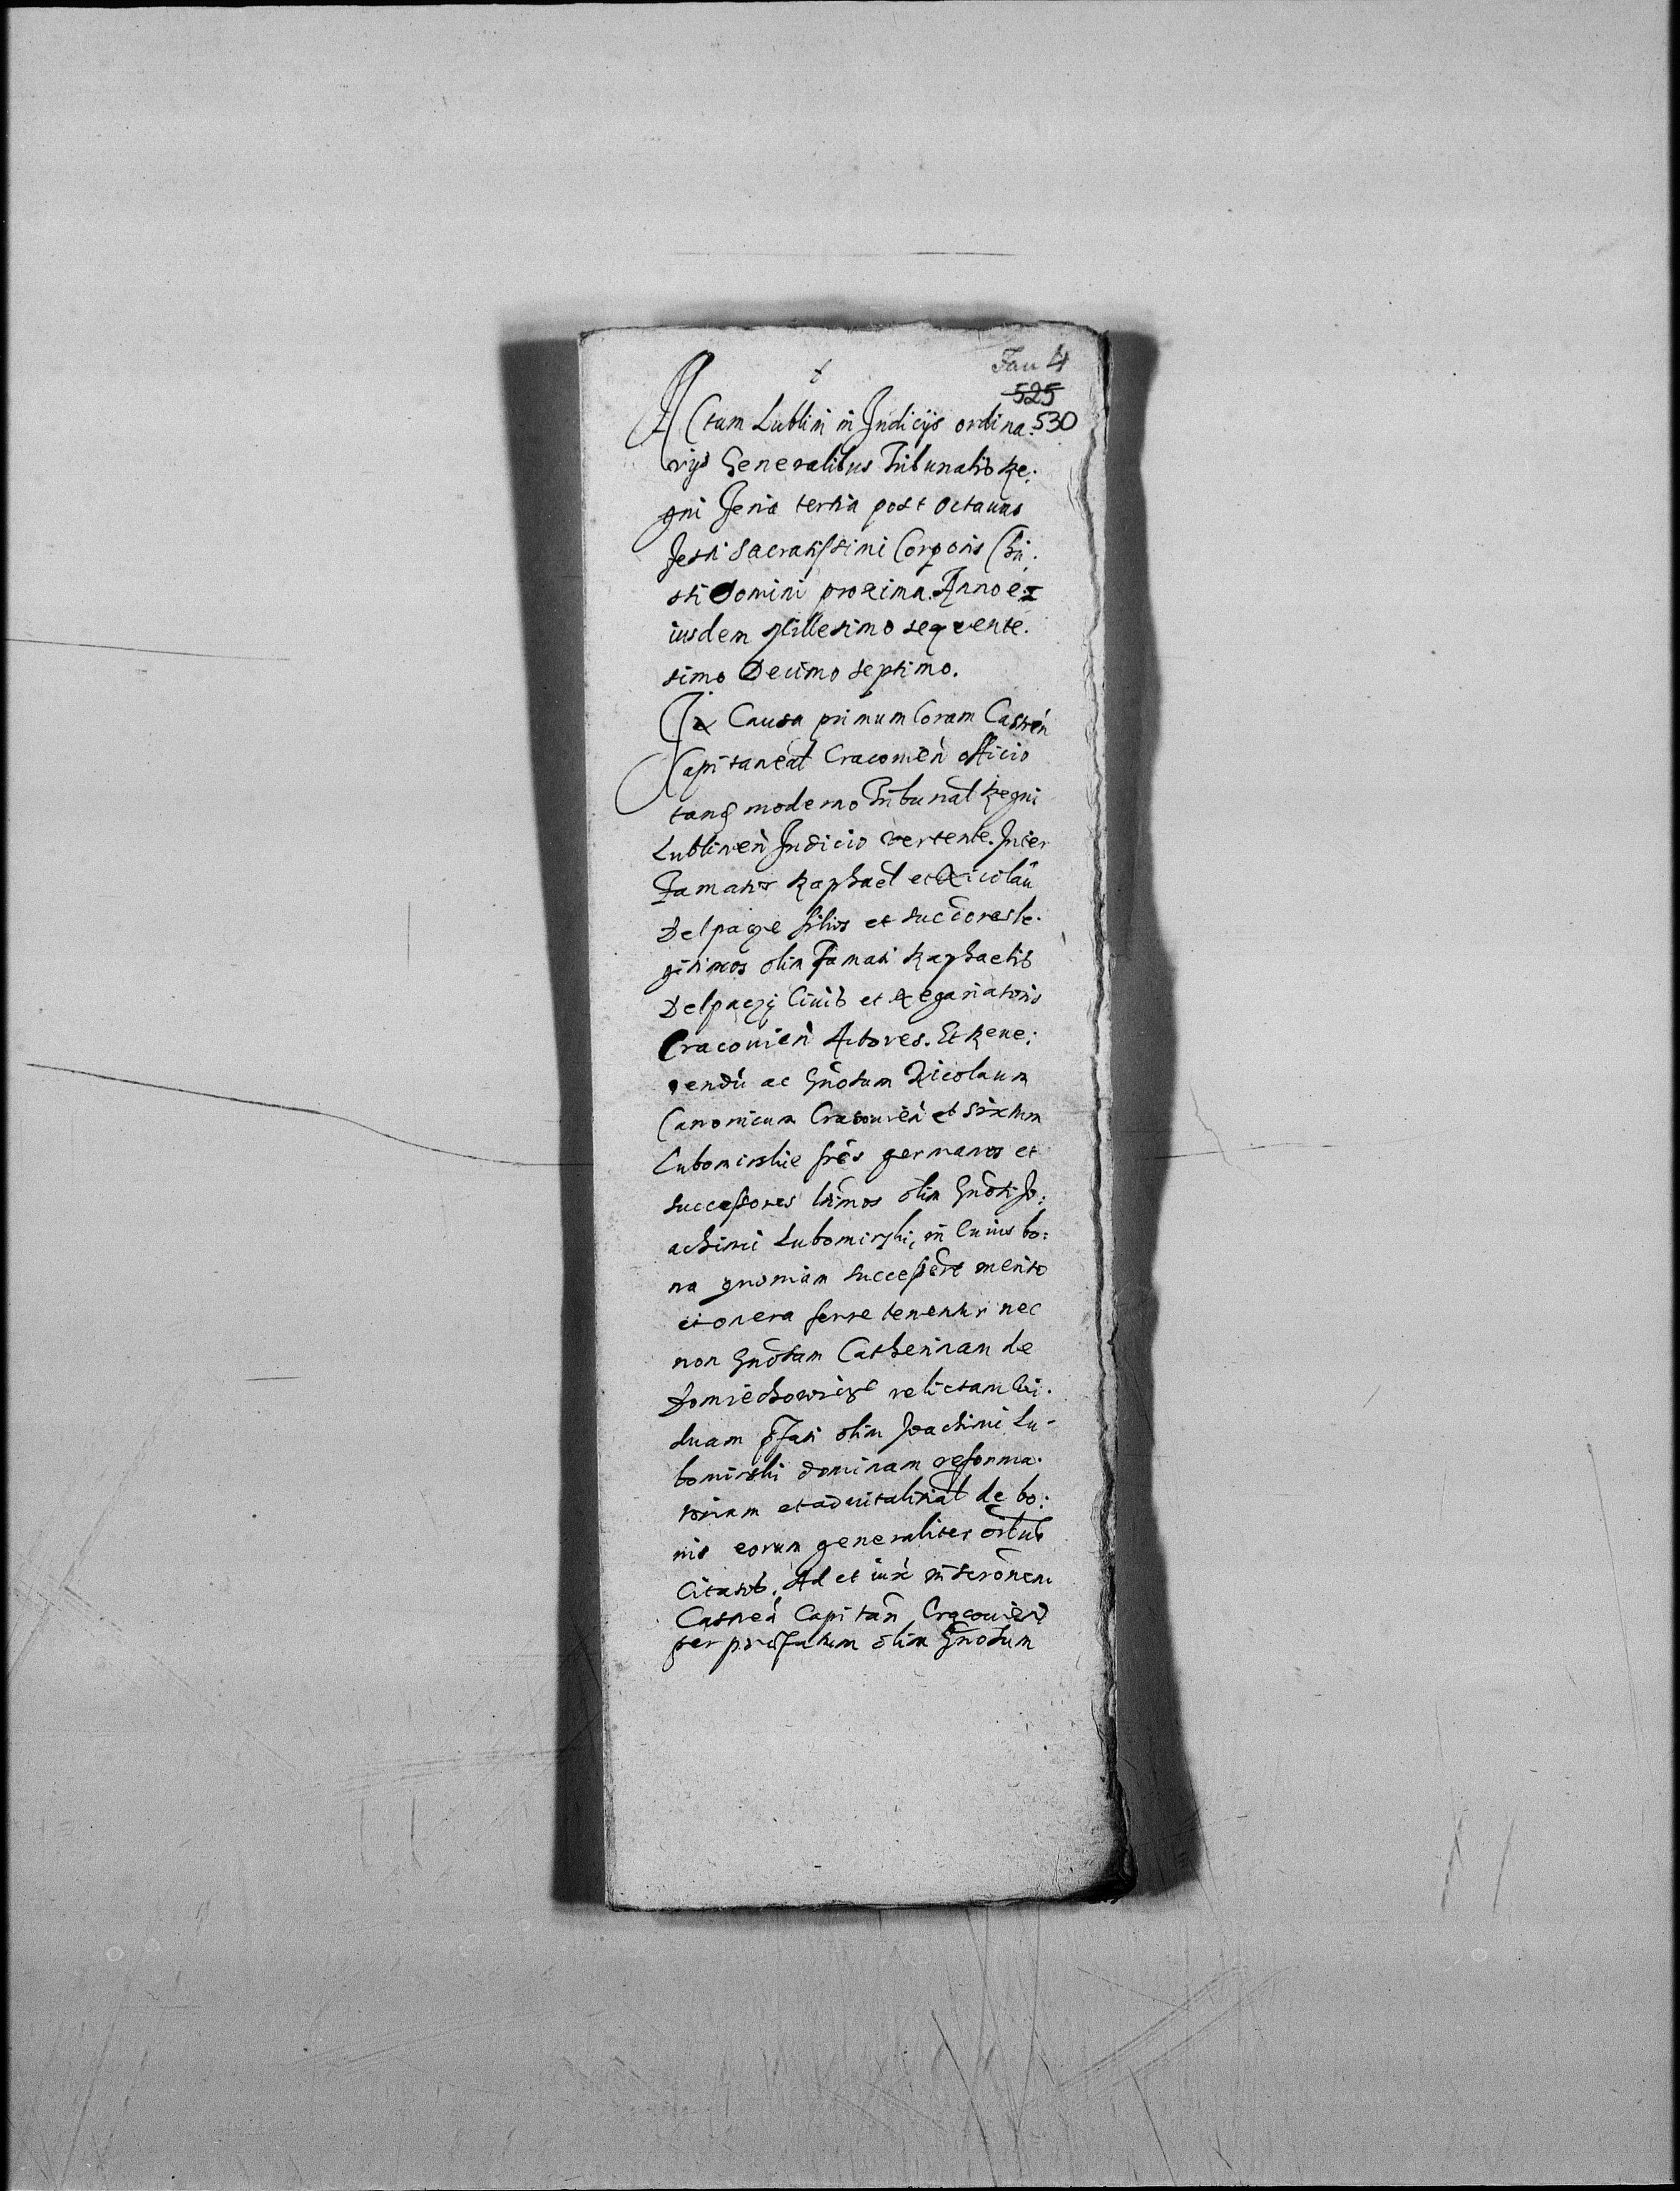 Fau 4
525
530
Actum Lublini in Judicijs ordina:
rijs Generalibus Tribunalis Re:
gni Feria tertia post octauas
festi Sacratissimi Corporis Chri:
sti Domini proxima. Anno e:
iusdem Millesimo sexcente.
simo Decimo septimo.
In Causa primum Coram Castren̄
Capitaneāl Cracouien̄ officio
tanq̄ moderno Tribunāl Regni
Lublinen̄ Judicio vertente. Inter
Famatos Raphael et Nicolaū
Delpacze filios et succ̄ores le.
gitimos olim Famati Raphaelis
Delpaczi Ciuis et Negariatoris
Cracouien̄ Actores. Et Reue:
rendū ac Gn̄osum Nicolaum
Canonicum Cracouien̄ et Sixtum
Lubomirskie fr̄es germanos et
successores lt̄imos olim Gn̄osi Jo:
achimi Lubomirski, in Cuius bo:
na quoniam successere merito
et onera ferre tenentur nec
non Gn̄osam Catherinam de
Domiechowicze relictam Vi.
duam p̄fati olim Joachimi Lu-
bomirski dominam reforma.
toriam et aduitalitiāl de bo:
nis eorum generaliter om̄ibus
Citatos. Ad et iux̄ inscr̄onem
Castren̄ Capitan̄ Cracouien̄
per praefatum olim Gn̄osum